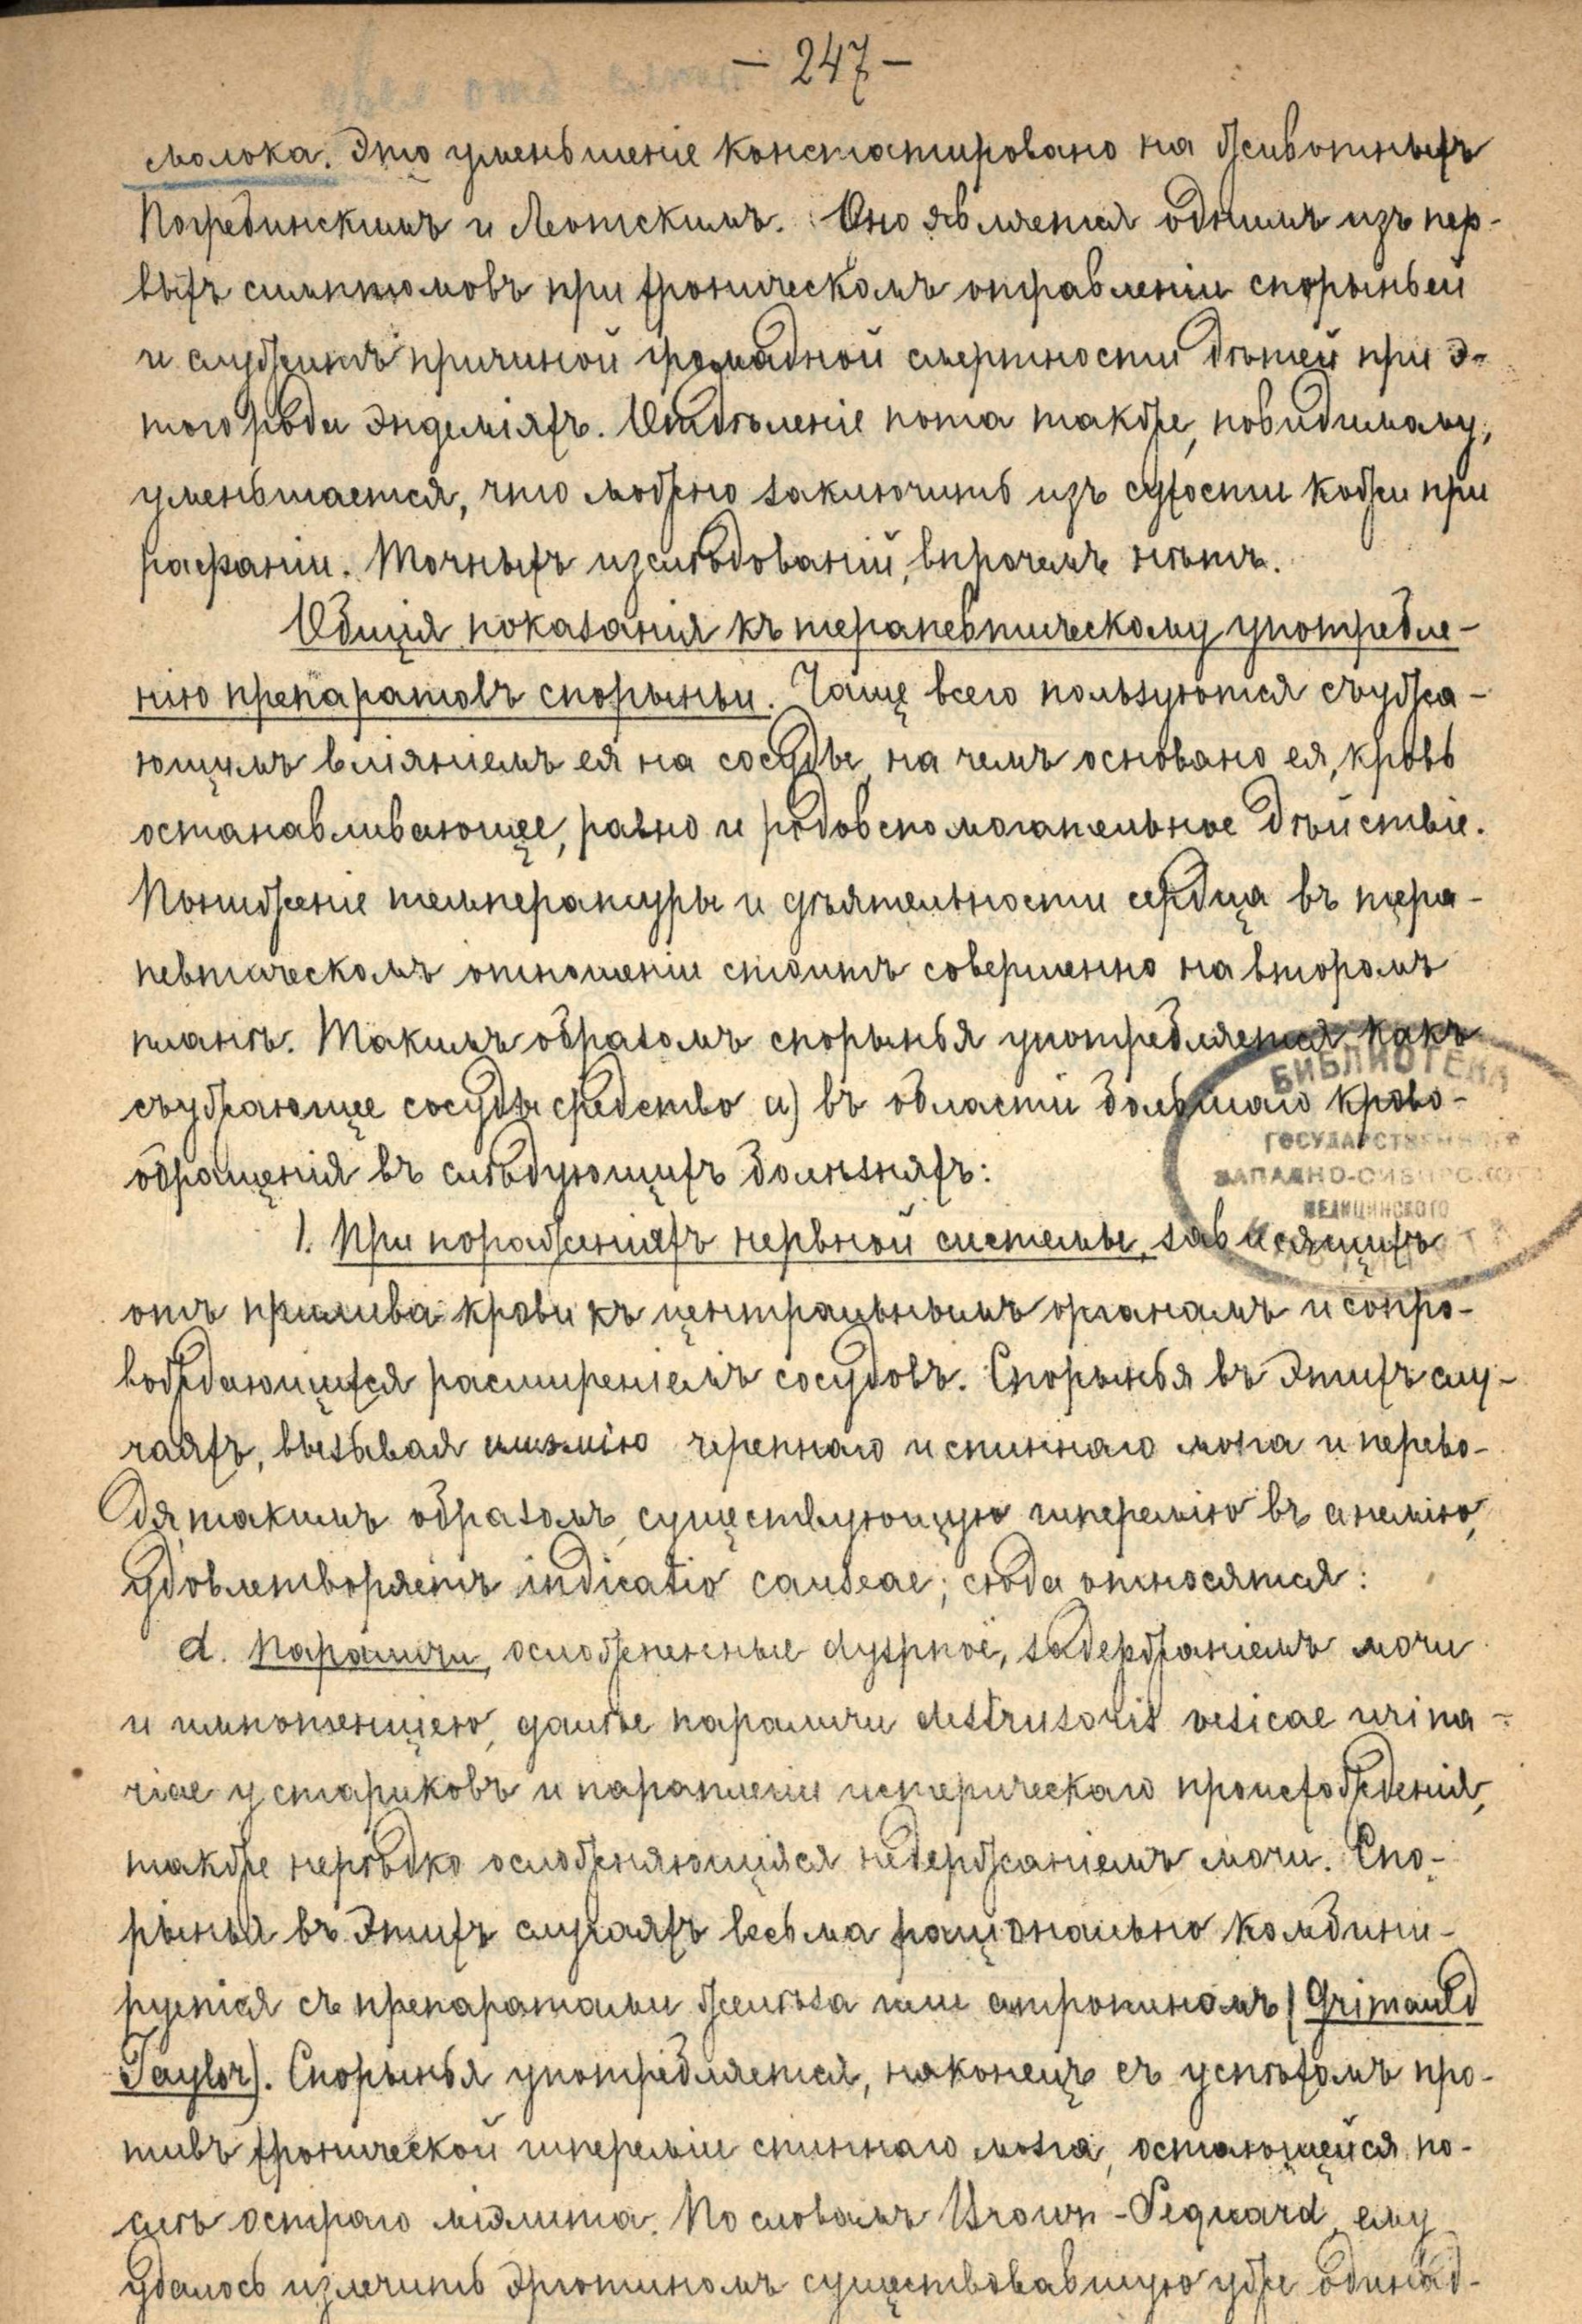 — 247 —
молока. Это уменьшеніе констатировано на животныхъ
Погребинскимъ и Леотскимъ. Оно является однимъ изъ пер-
выхъ симптомовъ при хроническомъ отравленіи спорыньей
и служитъ причиной громадной смертности дѣтей при э-
того рода эндеміяхъ. Отдѣленіе пота также, повидимому,
уменьшается, что можно заключить изъ сухости кожи при
рафаніи. Точныхъ изслѣдованій, впрочемъ нѣтъ.
Общія показанія къ терапевтическому употребле-
нію препаратовъ спорыньи. Чаще всего пользуются съужа-
ющимъ вліяніемъ ея на сосуды, на чемъ основано ея, кровь
останавливающее, равно и родовспомогательное дѣйствіе.
Пониженіе температуры и дѣятельности сердца въ тера-
певтическомъ отношеніи стоитъ совершенно на второмъ
планѣ. Такимъ образомъ спорынья употребляется какъ
съужающее сосуды средство а) въ области большаго крово-
обращенія въ слѣдующихъ болѣзняхъ:
БИБЛИОТЕКА
ГОСУДАРСТВЕННОГО
ЗАПАДНО-СИБИРСКОГО
МЕДИЦИНСКОГО
1. При пораженіяхъ нервной системы, зависящихъ
отъ прилива крови къ центральнымъ органамъ и сопро-
вождающихся расширеніемъ сосудовъ. Спорынья въ этихъ слу-
чаяхъ, вызывая черепнаго и спиннаго мозга и перево-
дя, такимъ образомъ, существующую гиперемію въ анемію,
удовлетворяетъ indicatio causeae; сюда относятся:
d. Параличи, осложненные dyspnoë, задержаніемъ мочи
и импотенціею, далѣе параличи destrusoris vesicae urina-
riae у стариковъ и параплегіи истерическаго происхожденія,
также нерѣдко осложняющіяся недержаніемъ мочи. Спо-
рынья въ этихъ случаяхъ весьма раціонально комбини-
руется съ препаратами желѣза или атропиномъ (Grimauld
Taylor). Спорынья употребляется, наконецъ съ успѣхомъ про-
тивъ хронической гипереміи спиннаго мозга, остающейся по-
слѣ остраго міэлита. По словамъ Brown-Sequard, ему
удалось излечить эрготиномъ существовавшую уже одинад-